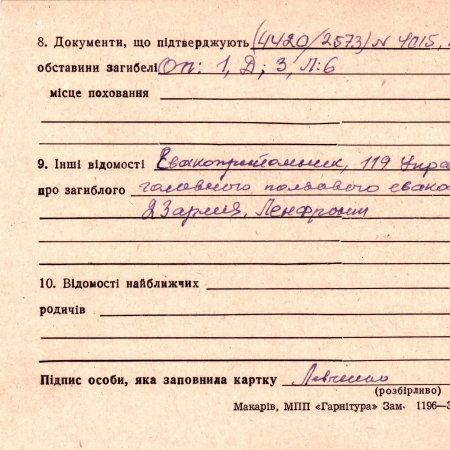 8. Документи, що підтверджують (4420/2573) N 4015,
обставини загибелі Оп: 1, Д; 3, Л: 6
місце поховання
9. Інші відомості Евакоприемник, 119 Упра
про загиблого головного полевого евако
23 Армия, Ленфронт
10. Відомості найближчих
родичів
Підпис особи, яка заповнила картку Левченко
(розбірливо)
Макарів, МПП «Гарнітура» Зам. 1196—3